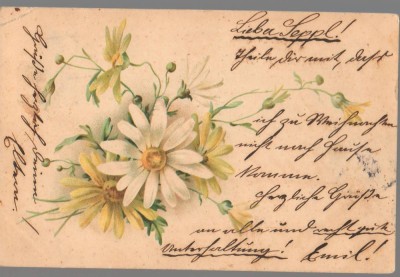 Lieber Seppl!
Theile dir mit, dass
ich zu Weihnachten
nicht nach Hause
komme.
Herzliche Grüße
an alle und recht gute
Unterhaltung! Emil!
Grüße
Deine
Eltern.